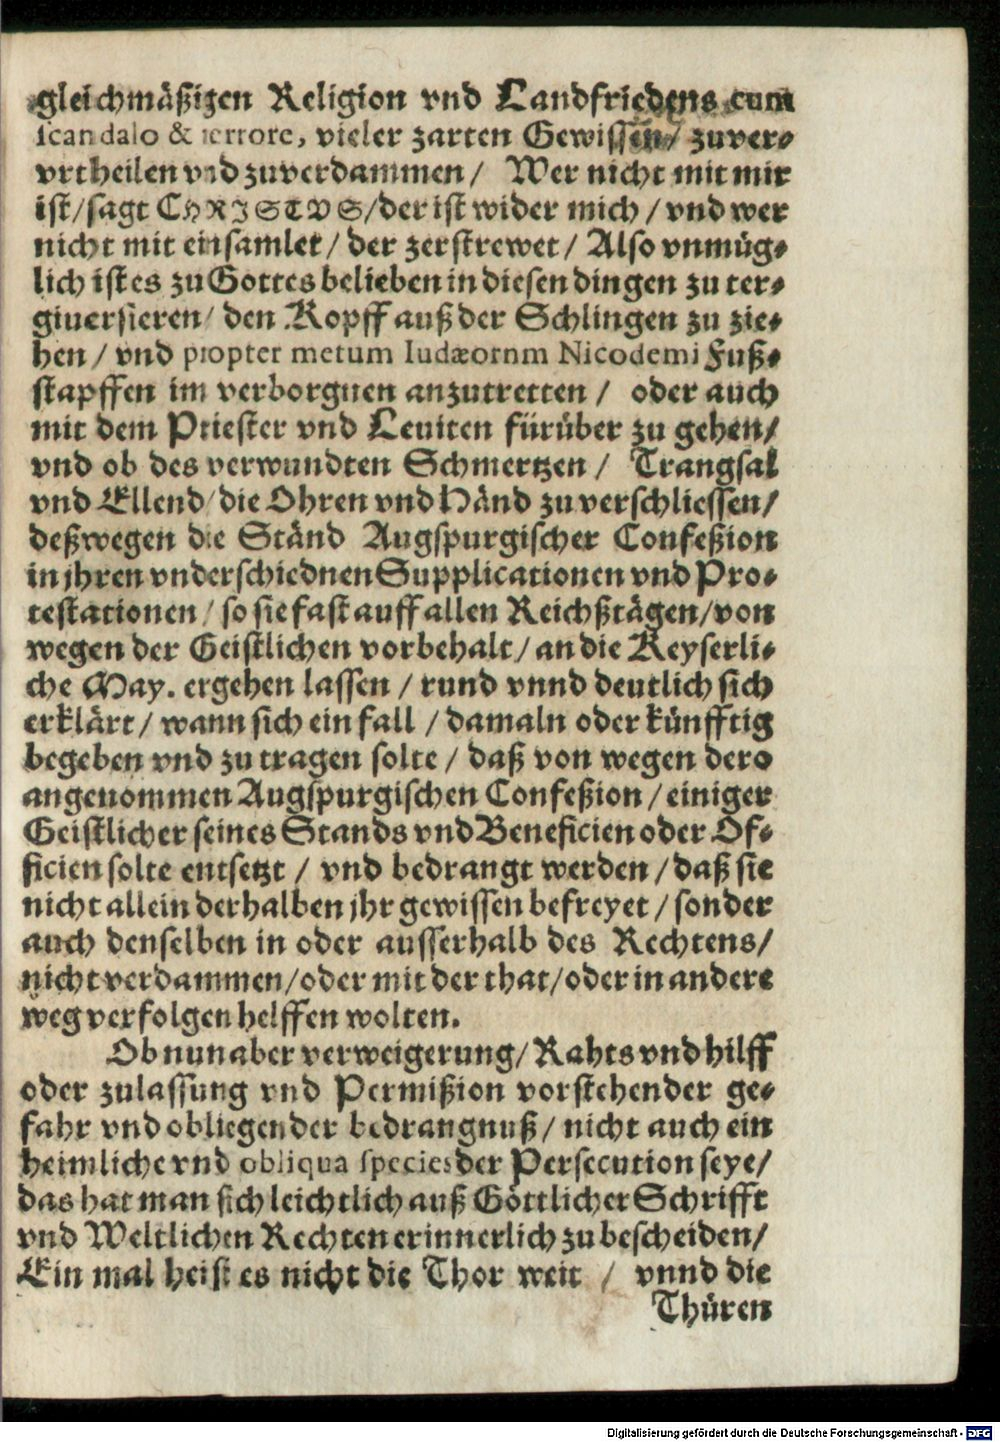 gleichmäßigen Religion vnd Landfriedens cum
scandalo & terrore, vieler zarten Gewissen / zuver-
vrtheilen vnd zuverdammen / Wer nicht mit mir
ist / sagt CHRISTVS / der ist wider mich / vnd wer
nicht mit einsamlet / der zerstrewet / Also vnmüg-
lich ist es zu Gottes belieben in diesen dingen zu ter-
giuersieren / den Kopff auß der Schlingen zu zie-
hen / vnd propter metum Iudæornm Nicodemi Fuß-
stapffen im verborgnen anzutretten / oder auch
mit dem Priester vnd Leuiten fürüber zu gehen /
vnd ob des verwundten Schmertzen / Trangsal
vnd Ellend / die Ohren vnd Händ zu verschliessen /
deßwegen die Ständ Augspurgischer Confeßion
in jhren vnderschiednen Supplicationen vnd Pro-
testationen / so sie fast auff allen Reichßtägen / von
wegen der Geistlichen vorbehalt / an die Keyserli-
che May. ergehen lassen / rund vnnd deutlich sich
erklärt / wann sich ein fall / damaln oder künfftig
begeben vnd zu tragen solte / daß von wegen dero
angenommen Augspurgischen Confeßion / einiger
Geistlicher seines Stands vnd Beneficien oder Of-
ficien solte entsetzt / vnd bedrangt werden / daß sie
nicht allein derhalben jhr gewissen befreyet / sonder
auch denselben in oder ausserhalb des Rechtens /
nicht verdammen / oder mit der that / oder in andere
weg verfolgen helffen wolten.
Ob nun aber verweigerung / Rahts vnd hilff
oder zulassung vnd Permißion vorstehender ge-
fahr vnd obliegender bedrangnuß / nicht auch ein
heimliche vnd obliqua species der Persecution seye /
das hat man sich leichtlich auß Göttlicher Schrifft
vnd Weltlichen Rechten erinnerlich zu bescheiden /
Ein mal heist es nicht die Thor weit / vnnd die
Thüren
Digitalisierung gefördert durch die Deutsche Forschungsgemeinschaft - DFG